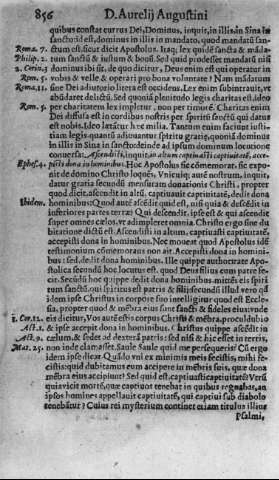 856 D. Aurelij Augustini
quibus constat currus Dei, Dominus, inquit, in illis, in Sina in
sancto: id est, dominus in illis in mandato, quod mandatũ san-
Roma. 7. ctum est. sicut dicit Apostolus. Itaq; lex quidẽ sancta & mãda-
Philip. 2. tum sanctũ & iustum & bonũ. Sed quid prodesset mandatũ nisi
2. Corin. 3 dominus ibi sit, de quo dicitur, Deus enim est qui operatur in
Rom. 5. vobis & velle & operari pro bona voluntate? Nam mãdatum
Roma. 11. sine Dei adiutorio litera est occidens. Lex enim subintrauit, vt
abũdaret delictũ. Sed quoniã plenitudo legis charitas est ideo
Rom. 5. per charitatem lex impletur, non per timorẽ. Charitas enim
Dei diffusa est in cordibus nostris per spiritũ sanctũ qui datus
est nobis. Ideo lætãtur hæc milia. Tantum enim faciunt iusti-
tiam legis quantũ adiuuantur spiritu gratiæ, quoniã dominus
in illis in Sina in sancto
conuersa: Ascendisti, inquit, in altum captiuasti captiuitatẽ, acce-
Ephes. 4. pisti dona in hominibus. Hoc Apostolus sic cõmemorat. sic expo-
nit de domino Christo loquẽs, Vnicuiq; autẽ nostrum, inquit,
datur gratia secundũ mensuram donationis Christi, propter
quod dicit, ascendit in altũ, captiuauit captiuitatẽ, dedit dona
Ibidem. hominibus: Quod autẽ ascẽdit quid est, nisi quia & descẽdit in
inferiores partes terræ? Qui descendit, ipse est & qui ascendit
super omnes cælos, vt adimpleret omnia. Christo ergo sine du-
bitatione dictũ est. Ascendisti in altum, captiuasti captiuitatẽ,
accepisti dona in hominibus. Nec moueat quod Apostolus idẽ
testimonium cõmemorans non ait. Accepisti dona in homini-
bus: sed, dedit dona hominibus. Ille quippe authoritate Apo-
stolica secundũ hoc locutus est, quod Deus filius cum patre fe-
cit. Secũdũ hoc quippe dedit dona hominibus, mittẽs eis spiri-
tum sanctũ, qui spiritus est patris & filij: secundũ illud vero quod
idem ipse Christus in corpore suo intelligitur quod est Eccle-
sia, propter quod & mẽbra eius sunt sancti & fideles eius: vnde
1. Cor. 12. eis dicitur, Vos autẽ estis corpus Christi & mẽbra, proculdubio
Act. 1. & ipse accepit dona in hominibus. Christus quippe ascẽdit in
Act. 9. cælum, & sedet ad dexterã patris: sed nisi & hic esset in terris,
Mat. 25. non inde clamasset. Saule Saule quid me persequeris? Cũ ergo
idem ipse dicat. Quãdo vni ex minimis meis fecistis, mihi fe-
cistis: quid dubitamus eum accipere in mẽbris suis, quæ dona
mẽbra eius accipiunt? Sed quid est, captiuasti captiuitatẽ? Vtrũ
quia vicit mortẽ, quæ captiuos tenebat in quibus regnabat, an
ipsos homines appellauit captiuitatẽ, qui captiui sub diabolo
tenebãtur? Cuius rei mysterium continet etiam titulus illius
Psalmi,